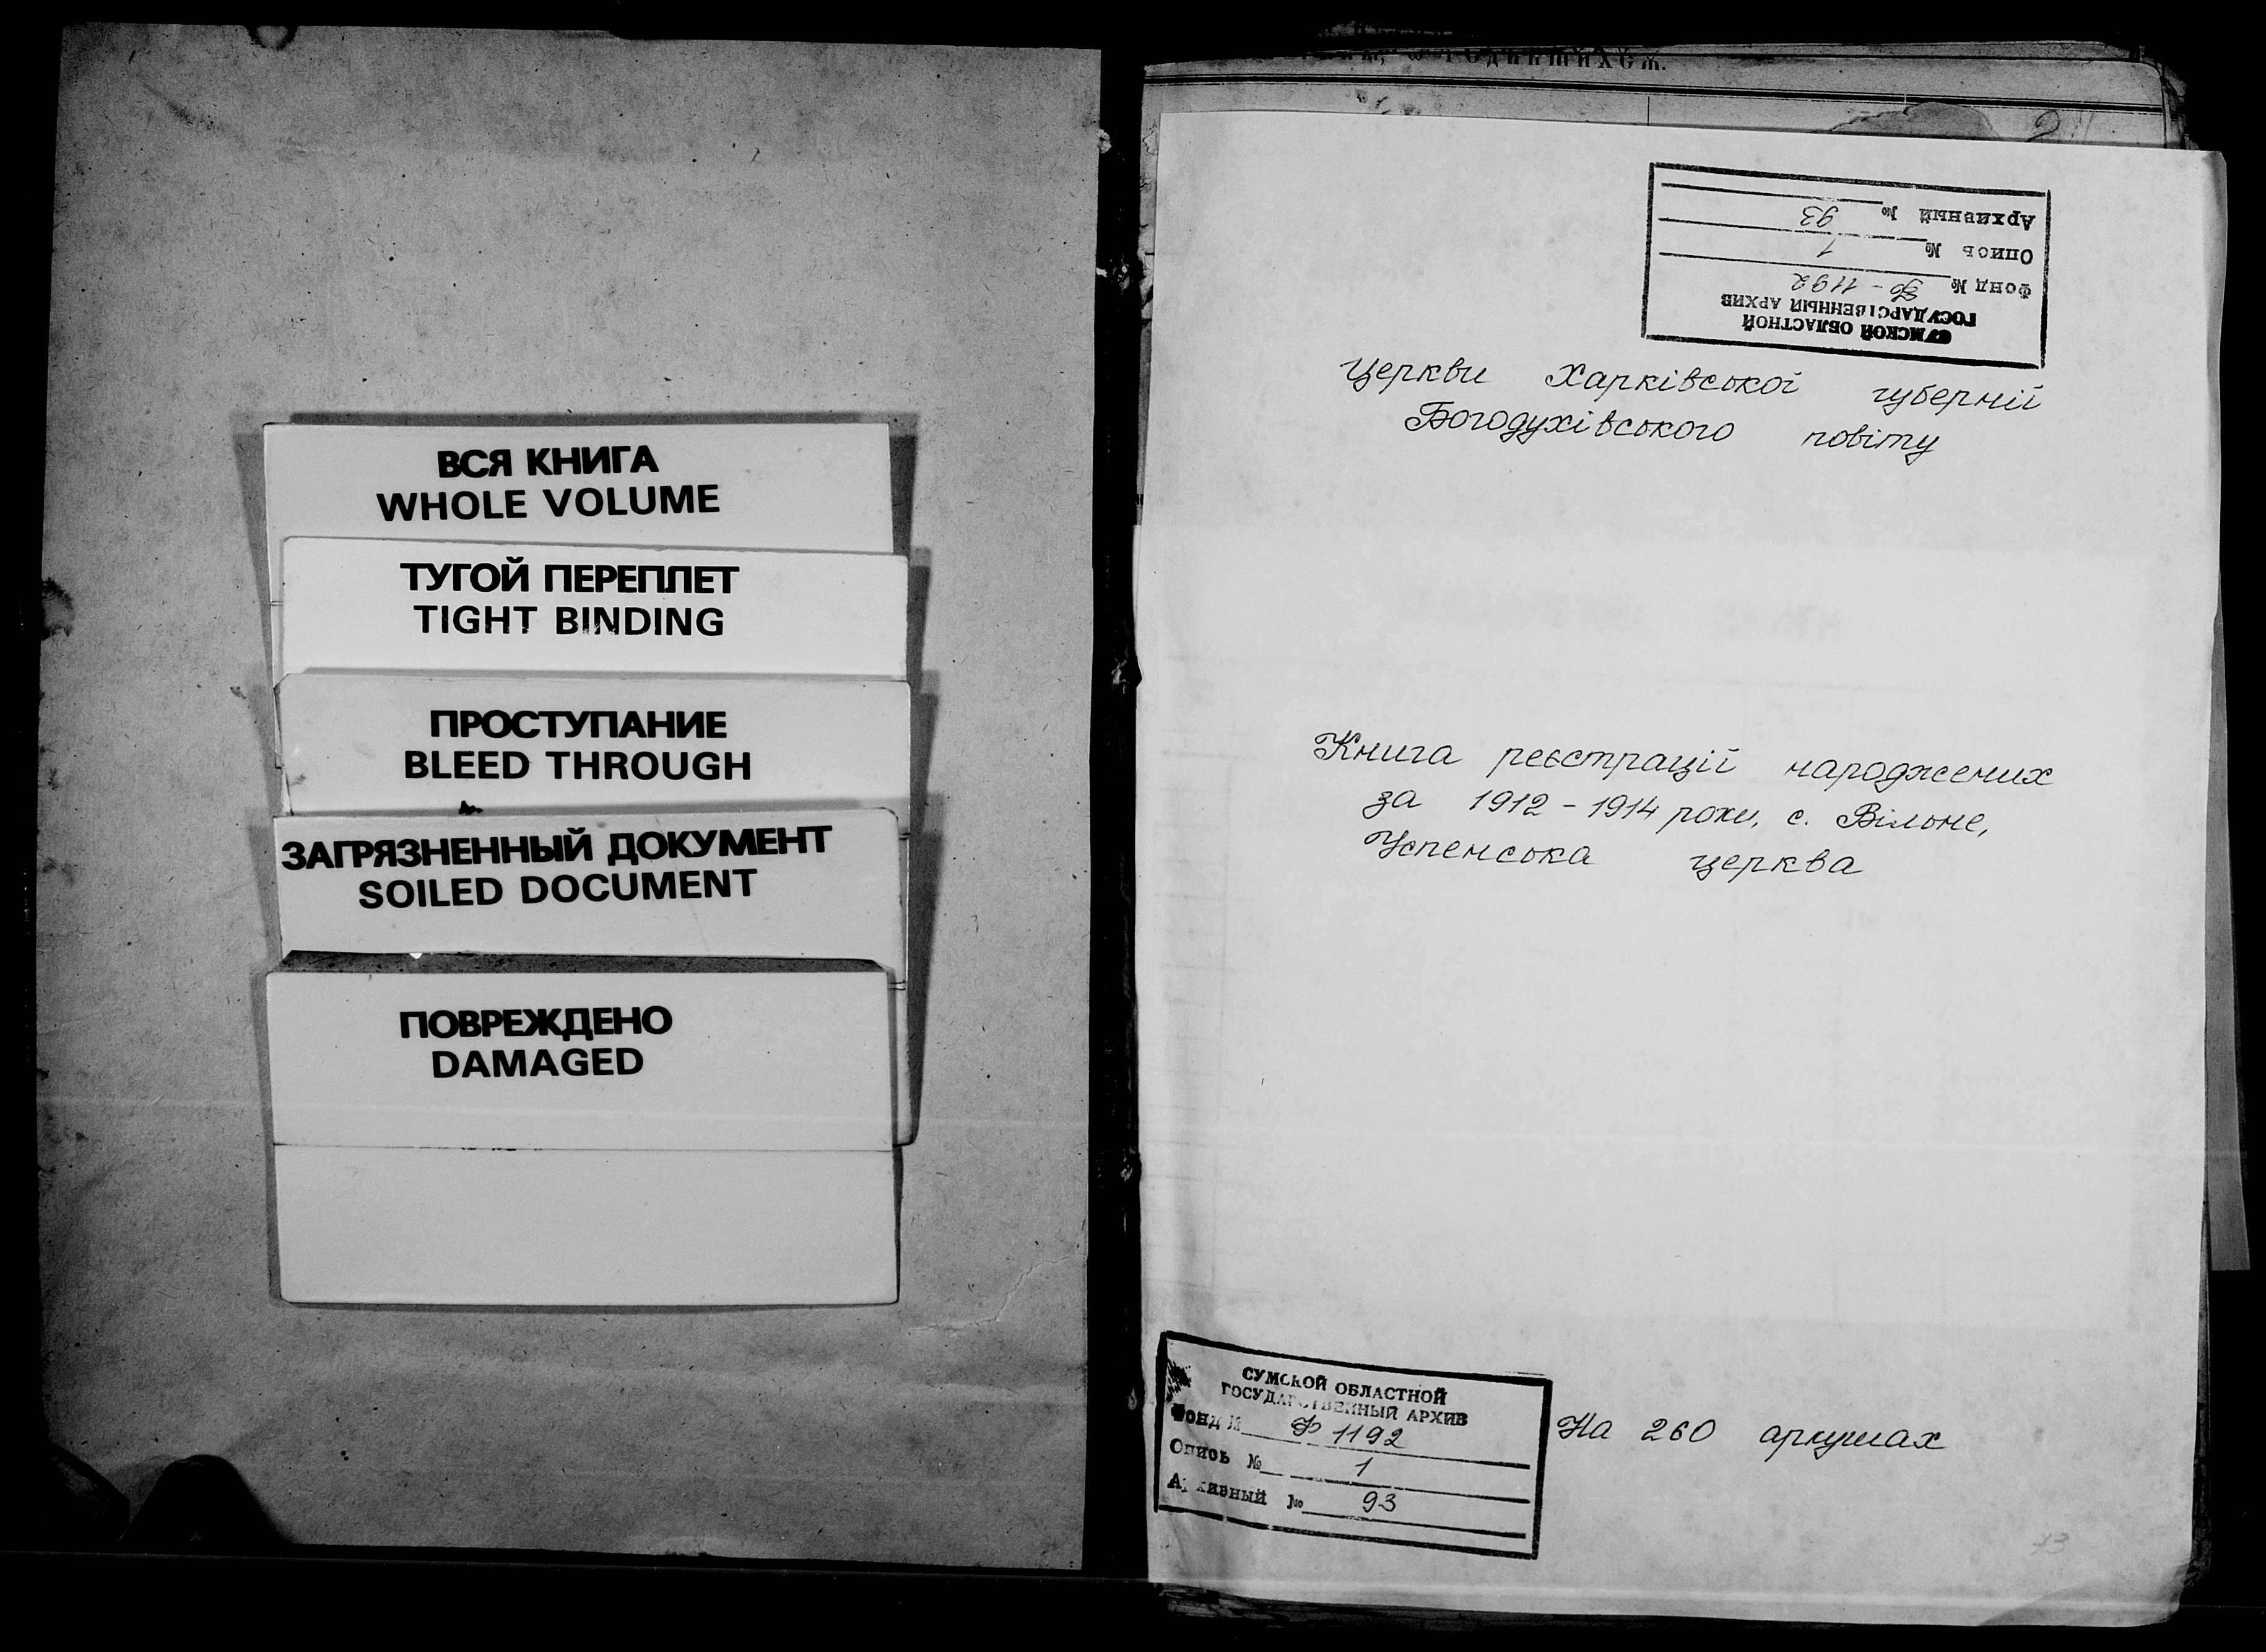 ВСЯ КНИГА
WHOLE VOLUME
ТУГОЙ ПЕРЕПЛЕТ
TIGHT BINDING
ПРОСТУПАНИЕ
BLEED THROUGH
ЗАГРЯЗНЕННЫЙ ДОКУМЕНТ
SOILED DOCUMENT
ПОВРЕЖДЕНО
DAMAGED
2
СУМСКОЙ ОБЛАСТНОЙ
ГОСУДАРСТВЕННЫЙ АРХИВ
Фонд № Ф-1192
Опись № 1
Архивный № 93
Церкви Харківської губернії
Богодухівського повіту
Книга реєстрації народжених
за 1912-1914 роки, с. Вільне,
Успенська церква
СУМСКОЙ ОБЛАСТНОЙ
ГОСУДАРСТВЕННЫЙ АРХИВ
Фонд № Ф 1192
Опись № 1
Архивный № 93
На 260 аркушах